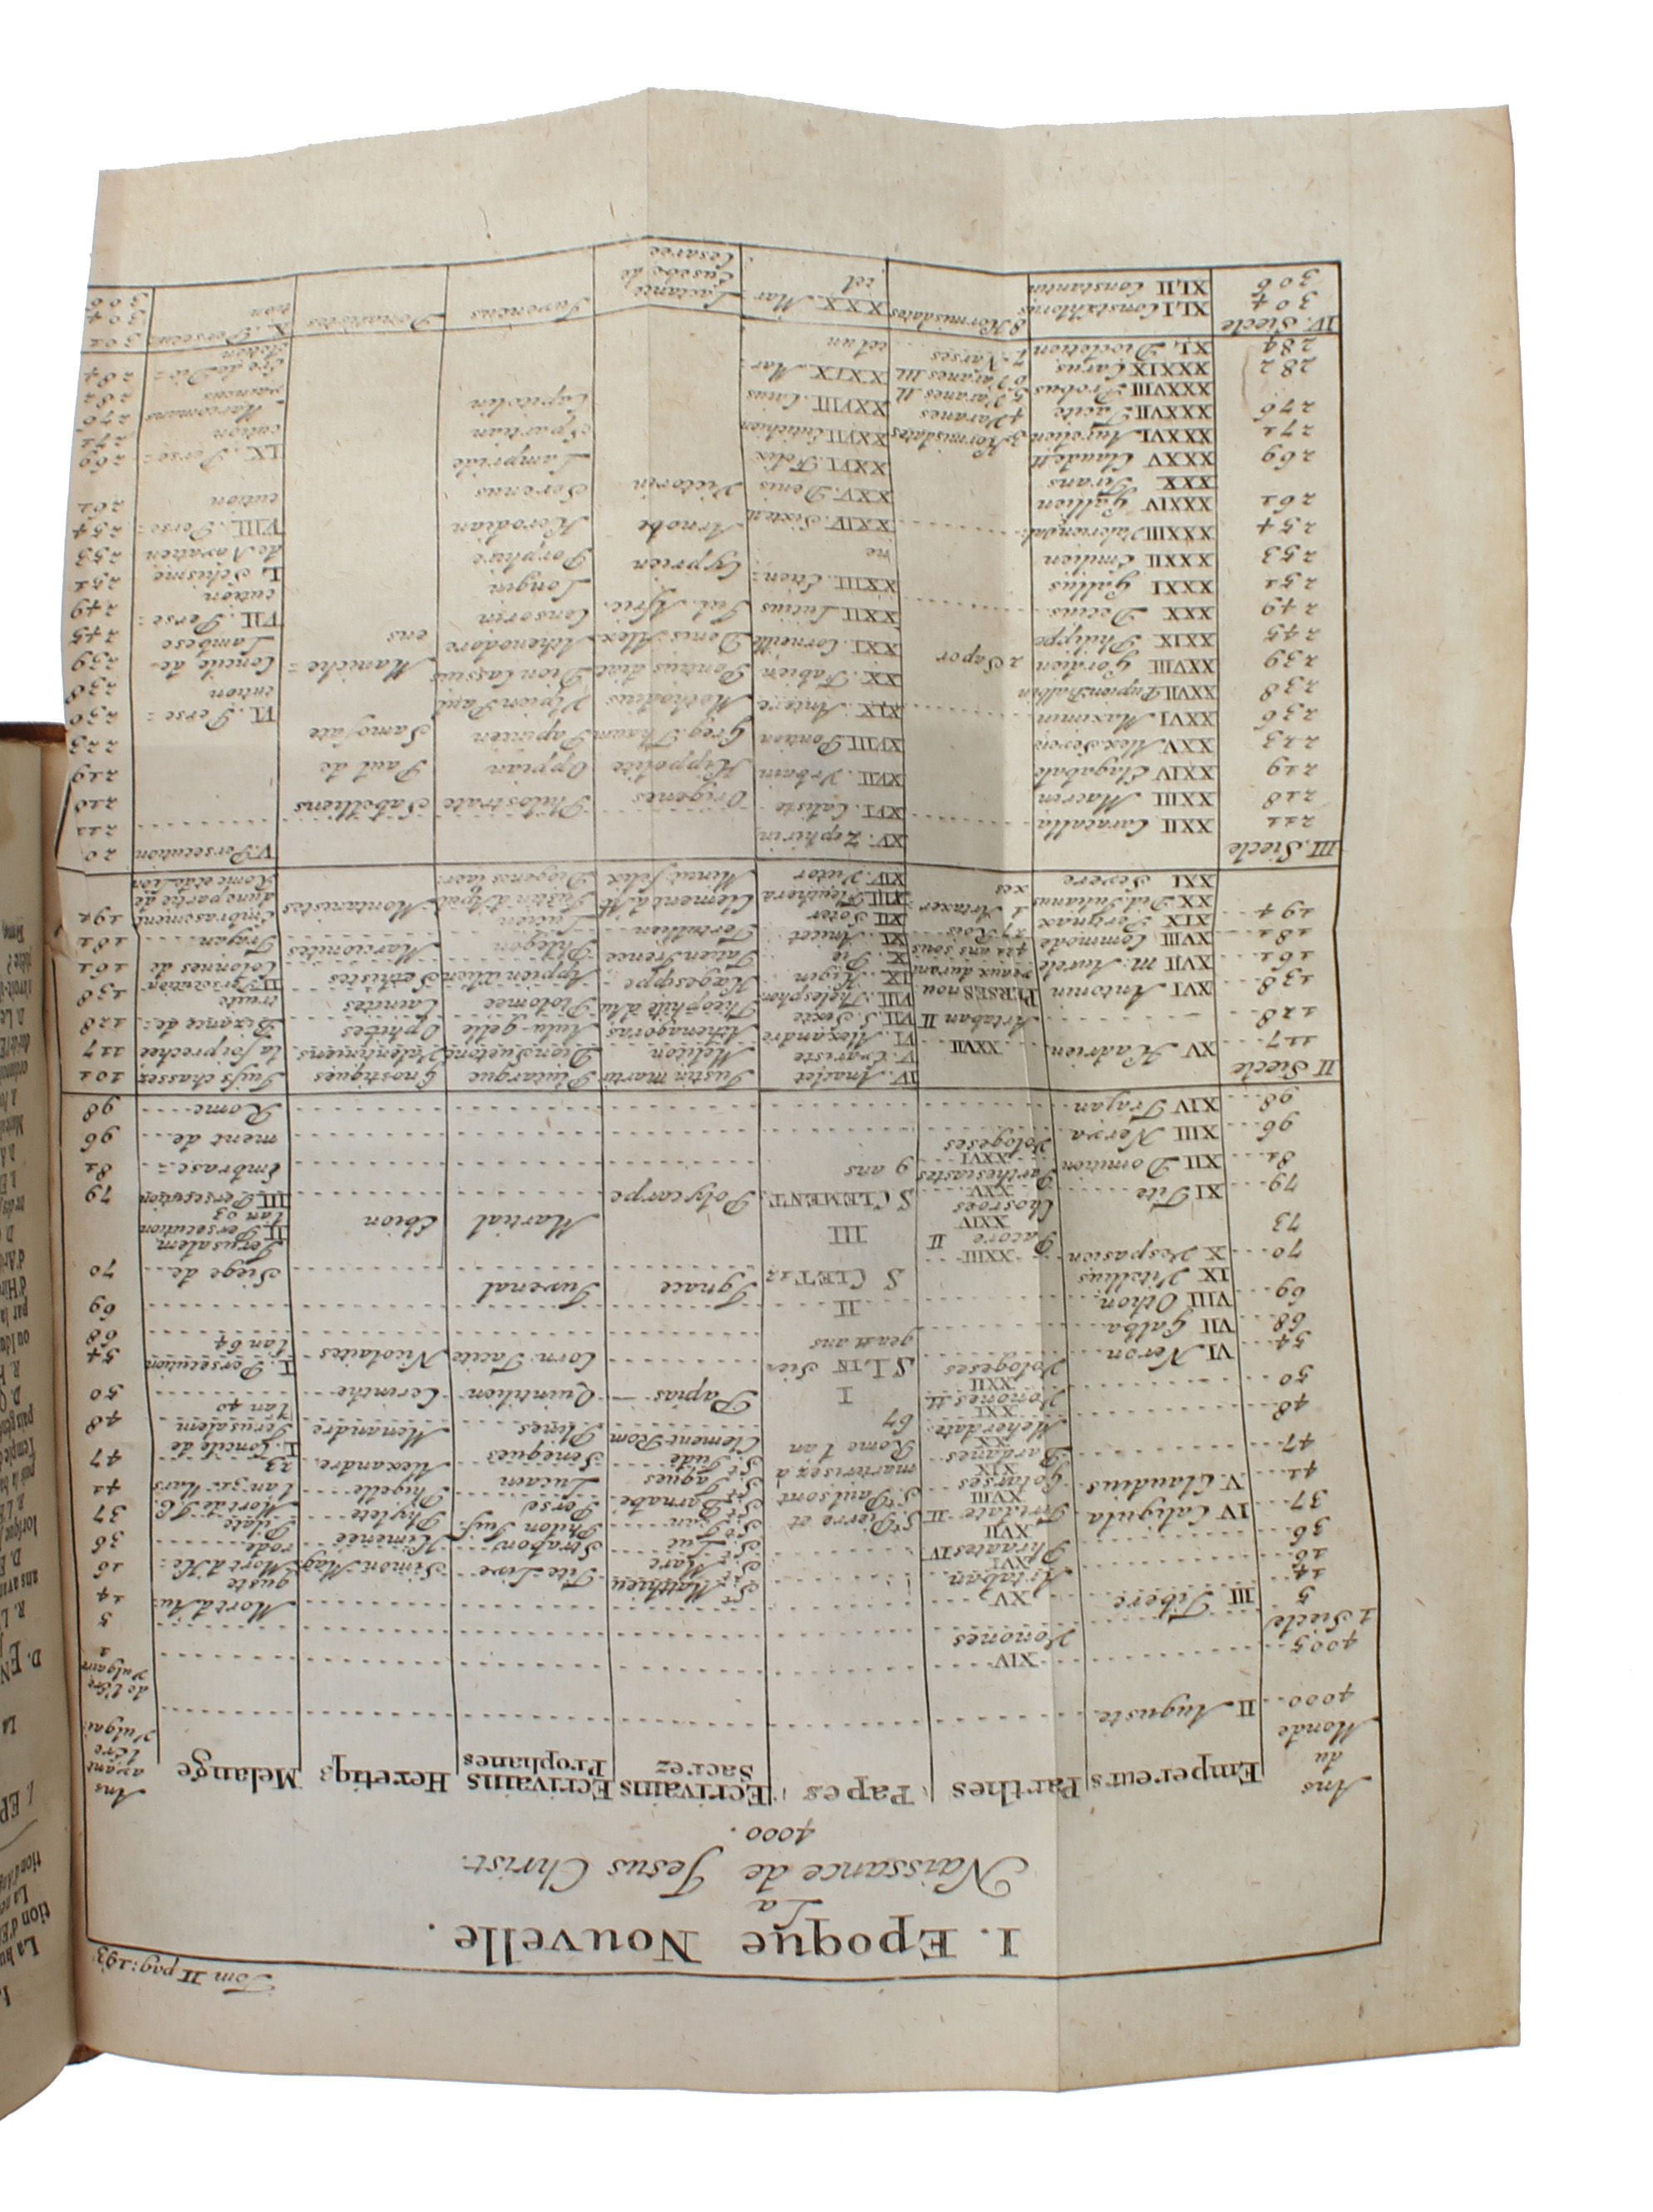 Tom II pag: 193.
I. Epoque Nouvelle.
La
Naissance de Jesus Christ.
4000.
Ans du Monde | Empereurs | Parthes | Papes | Ecrivains Sacrez | Ecrivains Prophanes | Heretiq; | Melange | Ans avant l'Ere Vulgai
4000 | II Auguste
de l'Ere Vulgaire
4005 | XIV Vonones | 1
1 Siecle
5 | 5
14 | III Tibere | XV | St Matthieu | Mort d'Au= guste | 14
16 | XVI Artaban | St Marc | Tite-Live | Simon Mag. | Mort d'He= rode | 16
36 | XVII Phraates IV | St Luc | Strabon | Himenée | Pilate | 36
37 | IV Caligula | XVIII Tiridate II | St Pierre et | St Jean | Philon Juif | Phylete | Mort de J.C. | 37
41 | V. Claudius | XIX Gotarses | St Paul sont martirisez à | St Barnabé | Perse | Phigelle | lan 33. Mars 23 | 41
47 | XX Bardanes | Rome l'an 67 | St Jaques | Lucain | Alexandre | I. Concile de | 47
48 | XXI Meherdate | St Jude | Seneques | Menandre | Jerusalem | 48
50 | XXII Vonones II | I | Clement Rom | Plines | Cerinthe | lan 40 | 50
54 | VI Neron | Vologeses | S LIN sie= | Papias | Quintilien | Nicolaites | I. Persecution | 54
68 | VII Galba | gea 11 ans | Corn. Tacite | lan 64 | 68
69 | VIII Othon | II | 69
IX Vitellius | S CLET 12 | Ignace | Juvenal
70 | X Vespasien | XXIII Pacore II | III | Siege de Jerusalem | 70
73 | XXIV Chosroes | II. Persecution lan 93
79 | XI Tite | XXV Parthesiastes | S CLEMENT | Polycarpe | Martial | Ebion | III Persecution | 79
81 | XII Domitien | XXVI Vologeses | 9 ans | Embrase= | 81
96 | XIII Nerva | ment de | 96
98 | XIV Trajan | Rome | 98
II Siecle | IV. Anaclet | Justin martir | Plutarque | Gnostiques | Juifs chassez | 101
117 | XV Hadrien | XXVII | V. Evariste | Meliton | Dion Suetone | Valentiniens | 117
128 | Artaban II | VI. Alexandre | Athenagoras | Aulu-gelle | Ophites | Bizance de= truite | 128
138 | XVI Antonin | PERSES nou | VII. S. Sexte | Ptolomée | Cainites | 138
161 | XVII M. Aurele | veaux durant | VIII. Thelesphore | Hagesyppe | Appien | Sethistes | Colonnes de | 161
181 | XVIII Commode | 421 ans sous | IX. Higin | Tatien Irenée | Phlegon | Marcionites | Trajan | 181
XIX Pertinax | 27 Rois | X. Pie | Tertullien | Lucien
194 | XX Did. Julianus | 1 Artaxer= xes | XI. Anicet | Clement d'Al | Montanistes | Embrasement dune partie de | 194
XXI Severe | XII Soter | Minut. felix | Diogenes laer: | Rome et de Lion
XIII Eleuthere
XIV Victor
III. Siecle | XV. Zephirin | V. Persecution | 20
211 | XXII Caracalla | XVI. Caliste | Origenes | Philostrate | Sabelliens | 211
218 | XXIII Macrin | XVII. Urbain | Hippolite | Oppian | Paul de Samosate | 218
219 | XXIV Elagabale | XVIII Pontien | Greg. Thaum | Papinien | 219
223 | XXV Alex. Severe | XIX. Antere | Methodius | Ulpien Paul | 223
236 | XXVI Maximin | XX. Fabien | Pontius diac | Dion Cassius | VI. Perse= cution | 230
238 | XXVII Pupien Balbin | 238
239 | XXVIII Gordien | 2 Sapor | XXI. Corneille | Denis Alex. | Athenodore | Maniche= ens | Concile de Lambese | 239
245 | XXIX Philippe | XXII Lucius | Jul. Afric. | Censorin | 245
249 | XXX Decius | XXIII. Etien= ne | Cyprien | Longin | VII. Perse= cution | 249
251 | XXXI Gallus | Porphire | I. Schisme | 251
253 | XXXII Emilien | de Novatien | 253
254 | XXXIII Valerien | XXIV. Sixte II | Arnobe | Herodian | VIII. Perse= cution | 254
261 | XXXIV Gallien | XXV. Denis | Victorin | Serenus | 261
XXX Tirans
269 | XXXV Claude II | XXVI. Felix | Lampride | IX. Perse= cution | 269
271 | XXXVI Aurelien | 3 Hormisdates | XXVII. Eutichien | Spartian | 271
276 | XXXVII Tacite | 4 Varanes | XXVIII. Caius | Capitolin | Marcomans vaincus | 276
XXXVIII Probus | 5 Varanes II
282 | XXXIX Carus | 6 Varanes III | XXIX. Mar= cel un | 282
284 | XL Diocletien | 7 Narses | Ere de Dio= cletien | 284
IV. Siecle | 301
304 | XLI Constan. Chlorus | 8 Hormisdates | XXX. Mar= cel | Lactance | Juvencus | Donatistes | X. Persecu= tion | 304
306 | XLII Constantin | Eusebe de Cesarée | 306